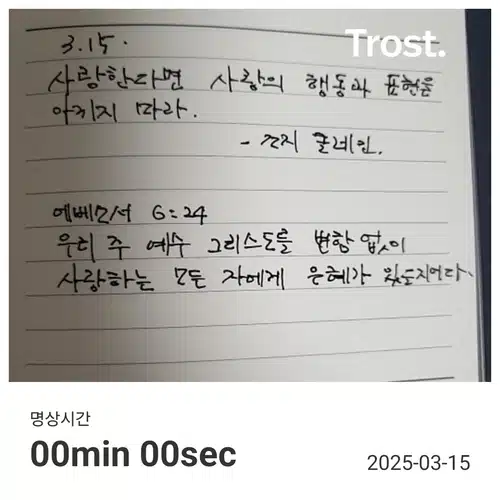 Trost.
3.15.
사랑한다면 사랑의 행동과 표현을
아끼지 마라.
- 조지 클레인.
에베소서 6:24
우리 주 예수 그리스도를 변함 없이
사랑하는 모든 자에게 은혜가 있을지어다.
명상시간
00min 00sec
2025-03-15